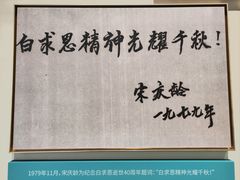 白求恩精神光耀千秋！
宋庆龄
一九七九年
1979年11月，宋庆龄为纪念白求恩逝世40周年题词：“白求恩精神光耀千秋！”